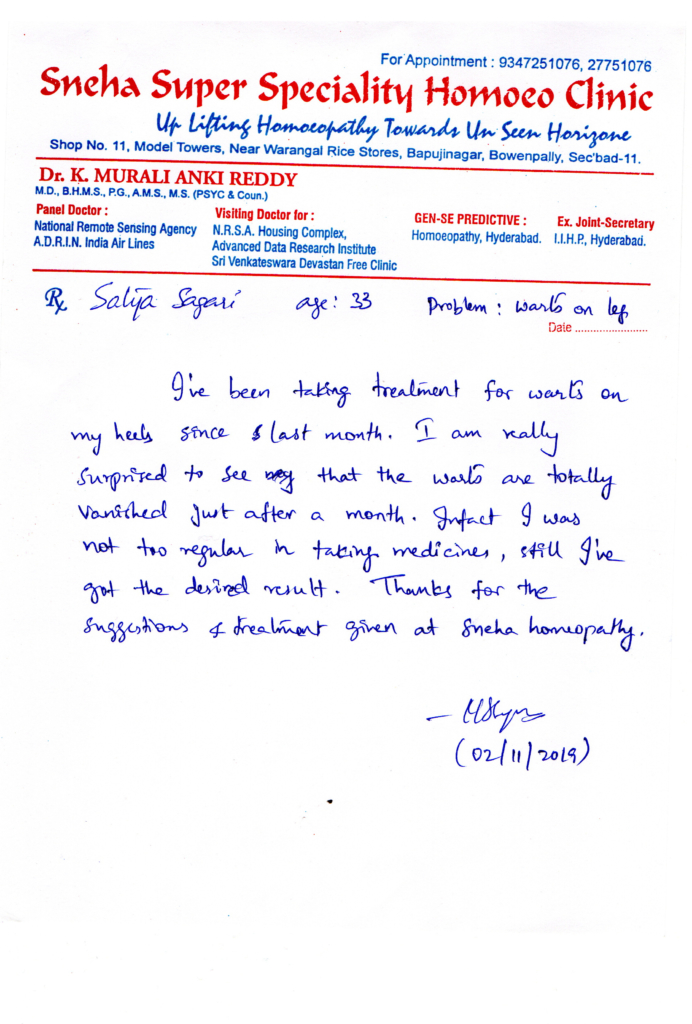 For Appointment : 9347251076, 27751076
Sneha Super Speciality Homoeo Clinic
Up Lifting Homoeopathy Towards Un Seen Horizone
Shop No. 11, Model Towers, Near Warangal Rice Stores, Bapujinagar, Bowenpally, Sec'bad-11.
Dr. K. MURALI ANKI REDDY
M.D., B.H.M.S., P.G., A.M.S., M.S. (PSYC & Coun.)
Panel Doctor :
National Remote Sensing Agency
A.D.R.I.N. India Air Lines
Visiting Doctor for :
N.R.S.A. Housing Complex,
Advanced Data Research Institute
Sri Venkateswara Devastan Free Clinic
GEN-SE PREDICTIVE :
Homoeopathy, Hyderabad.
Ex. Joint-Secretary
I.I.H.P., Hyderabad.
Rx age: 33 Problem: warts on leg
Date ........................
I've been taking treatment for warts on
my heels since last month. I am really
surprised to see that the warts are totally
vanished just after a month. Infact I was
not too regular in taking medicines, still I've
got the desired result. Thanks for the
suggestions & treatment given at Sneha homeopathy.
(02/11/2019)